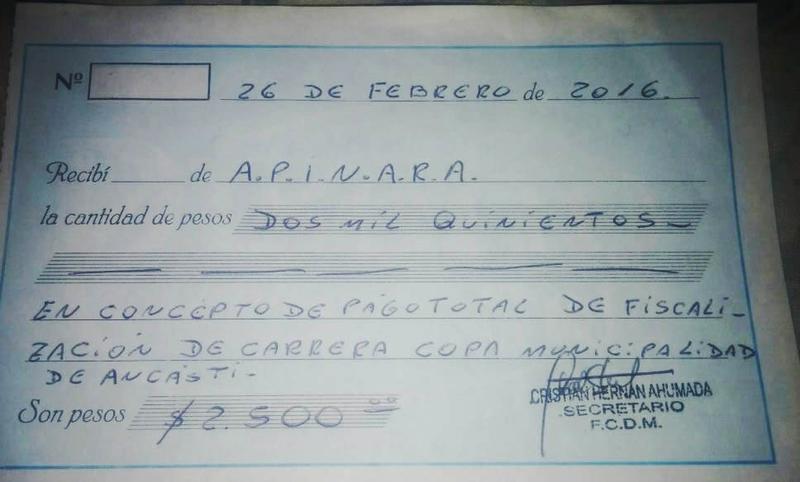 Nº 26 DE FEBRERO de 2016.
Recibí de A.P.I.N.A.R.A.
la cantidad de pesos DOS MIL QUINIENTOS
EN CONCEPTO DE PAGO TOTAL DE FISCALI-
ZACIÓN DE CARRERA COPA MUNICIPALIDAD
DE ANCASTI-
CRISTIAN HERNAN AHUMADA
Son pesos $ 2.500 00
SECRETARIO
F.C.D.M.